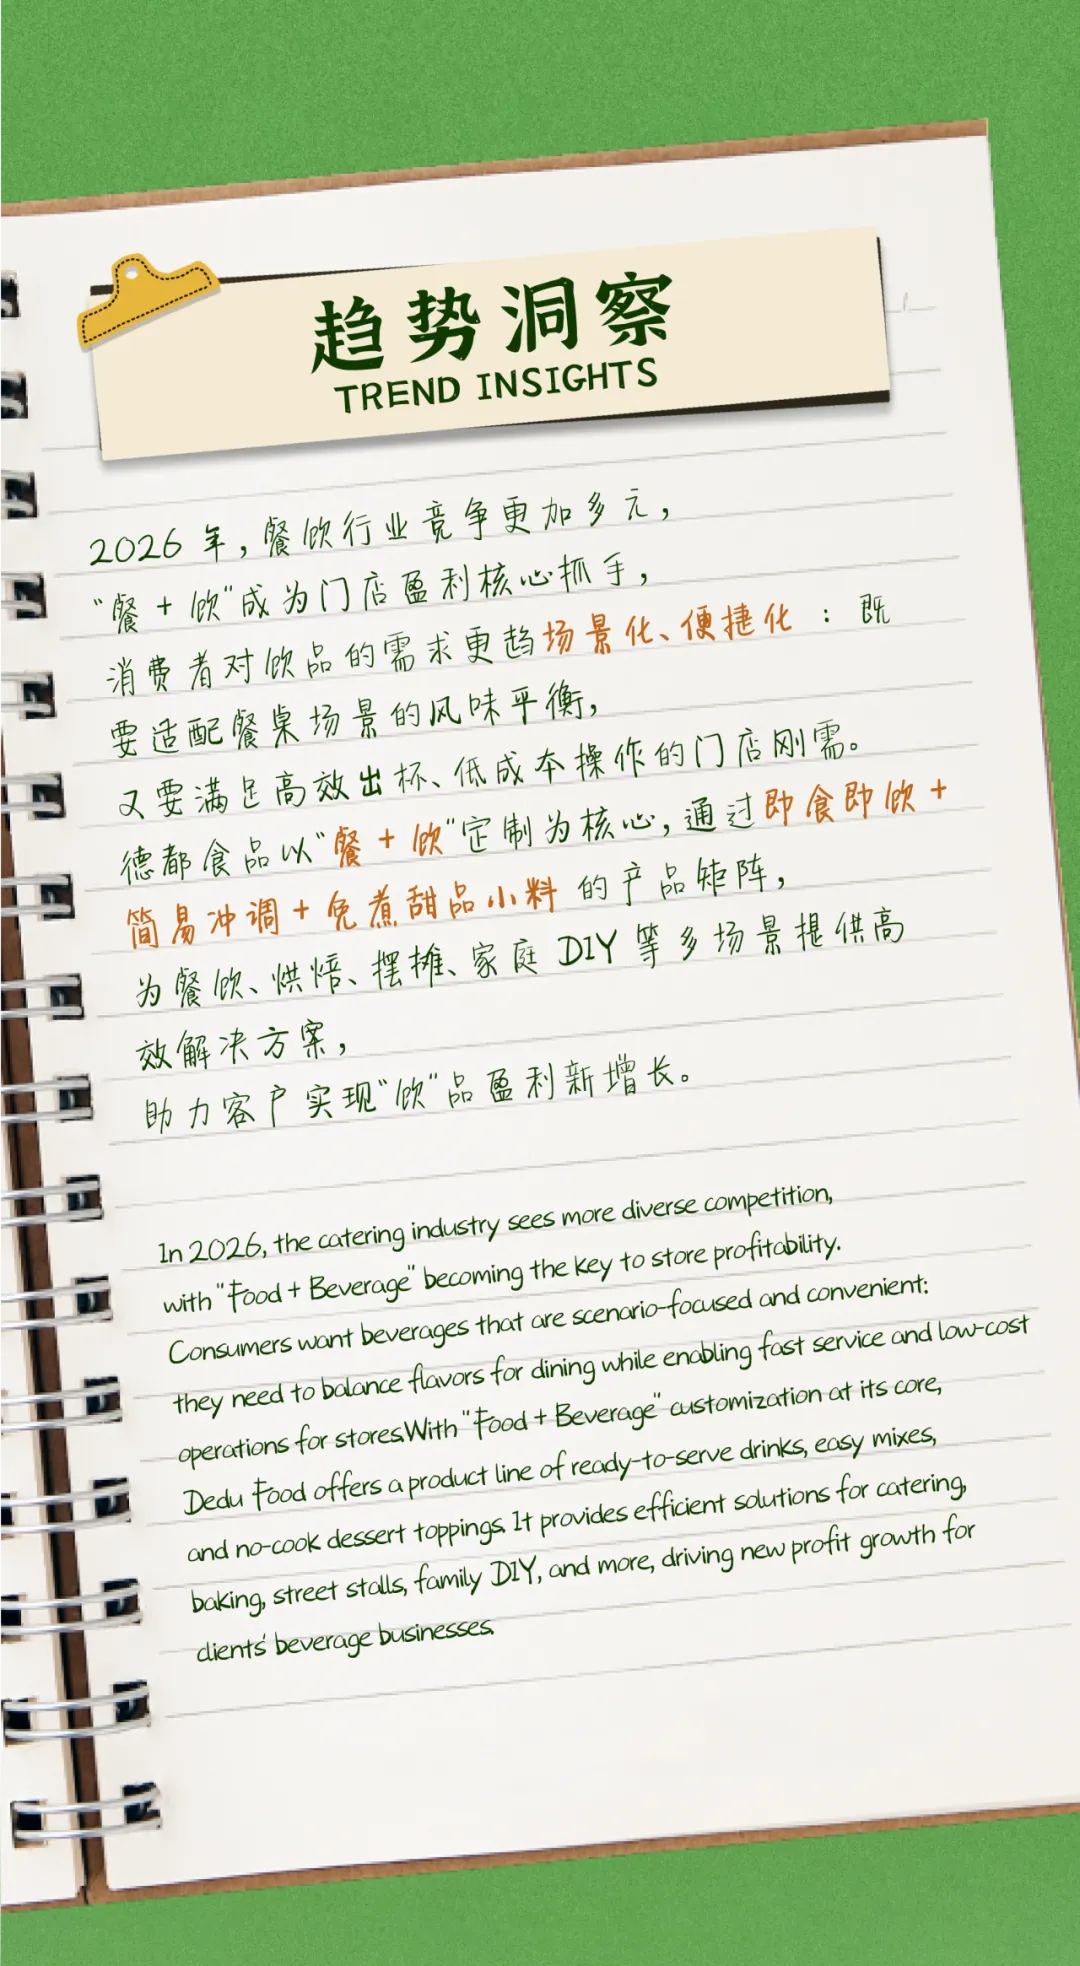 趋势洞察
TREND INSIGHTS
2026 年，餐饮行业竞争更加多元，
“餐 + 饮”成为门店盈利核心抓手，
消费者对饮品的需求更趋场景化、便捷化 ：既
要适配餐桌场景的风味平衡，
又要满足高效出杯、低成本操作的门店刚需。
德都食品以“餐 + 饮”定制为核心，通过即食即饮 +
简易冲调 + 免煮甜品小料 的产品矩阵，
为餐饮、烘焙、摆摊、家庭 DIY 等多场景提供高
效解决方案，
助力客户实现“饮”品盈利新增长。
In 2026, the catering industry sees more diverse competition,
with "Food + Beverage" becoming the key to store profitability.
Consumers want beverages that are scenario-focused and convenient:
they need to balance flavors for dining while enabling fast service and low-cost
operations for stores.With "Food + Beverage" customization at its core,
Dedu Food offers a product line of ready-to-serve drinks, easy mixes,
and no-cook dessert toppings. It provides efficient solutions for catering,
baking, street stalls, family DIY, and more, driving new profit growth for
clients' beverage businesses.